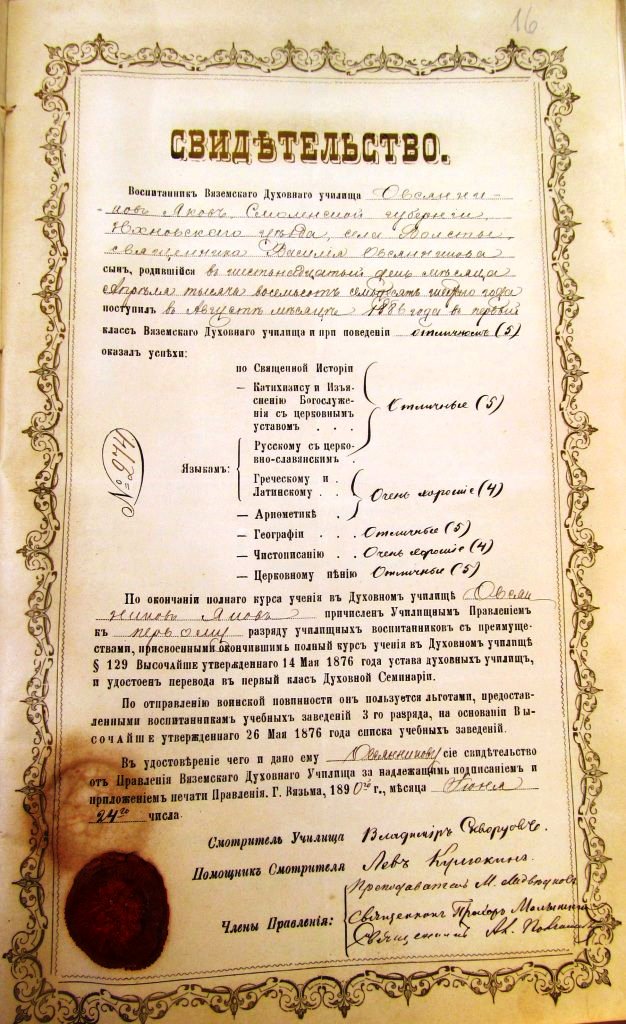 16
СВИДѢТЕЛЬСТВО.
Воспитанникъ Вяземскаго Духовнаго училища Овсянни-
ковъ Яковъ, Смоленской губерніи,
Юхновскаго уѣзда, села Волсты,
священника Василія Овсянникова
сынъ, родившійся въ шестьнадцатый день мѣсяца
Апрѣля тысяча восемьсотъ семьдесятъ года
поступилъ въ Августѣ мѣсяцѣ 1886 года въ первый
классъ Вяземскаго Духовнаго училища и при поведеніи отличномъ (5)
оказалъ успѣхи:
по Священной Исторіи
— Катихизису и Изъя-
сненію Богослуже-
нія съ церковнымъ
уставомъ . . .
Отличные (5)
Языкамъ:
Русскому съ церко-
вно-славянскимъ .
Греческому и .
Латинскому . .
Очень хорошіе (4)
— Ариѳметикѣ .
— Географіи . . Отличные (5)
— Чистописанію . . Очень хорошіе (4)
— Церковному пѣнію Отличные (5)
№ 274
По окончаніи полнаго курса ученія въ Духовномъ училищѣ Овсян
никовъ Яковъ причисленъ Училищнымъ Правленіемъ
къ первому разряду училищныхъ воспитанниковъ съ преимуще-
ствами, присвоенными окончившимъ полный курсъ ученія въ Духовномъ училищѣ
§ 129 Высочайше утвержденнаго 14 Мая 1876 года устава духовныхъ училищъ,
и удостоенъ перевода въ первый класъ Духовной Семинаріи.
По отправленію воинской повинности онъ пользуется льготами, предостав-
ленными воспитанникамъ учебныхъ заведеній 3-го разряда, на основаніи Вы-
СОЧАЙШЕ утвержденнаго 26 Мая 1876 года списка учебныхъ заведеній.
Въ удостовѣреніе чего и дано ему Овсянникову сіе свидѣтельство
отъ Правленія Вяземскаго Духовнаго Училища за надлежащимъ подписаніемъ и
приложеніемъ печати Правленія. Г. Вязьма, 1890 го г., мѣсяца Іюня
24го числа.
Смотритель Училища Владиміръ
Помощникъ Смотрителя Левъ
Преподаватель М.
Члены Правленія: Священникъ
Священникъ